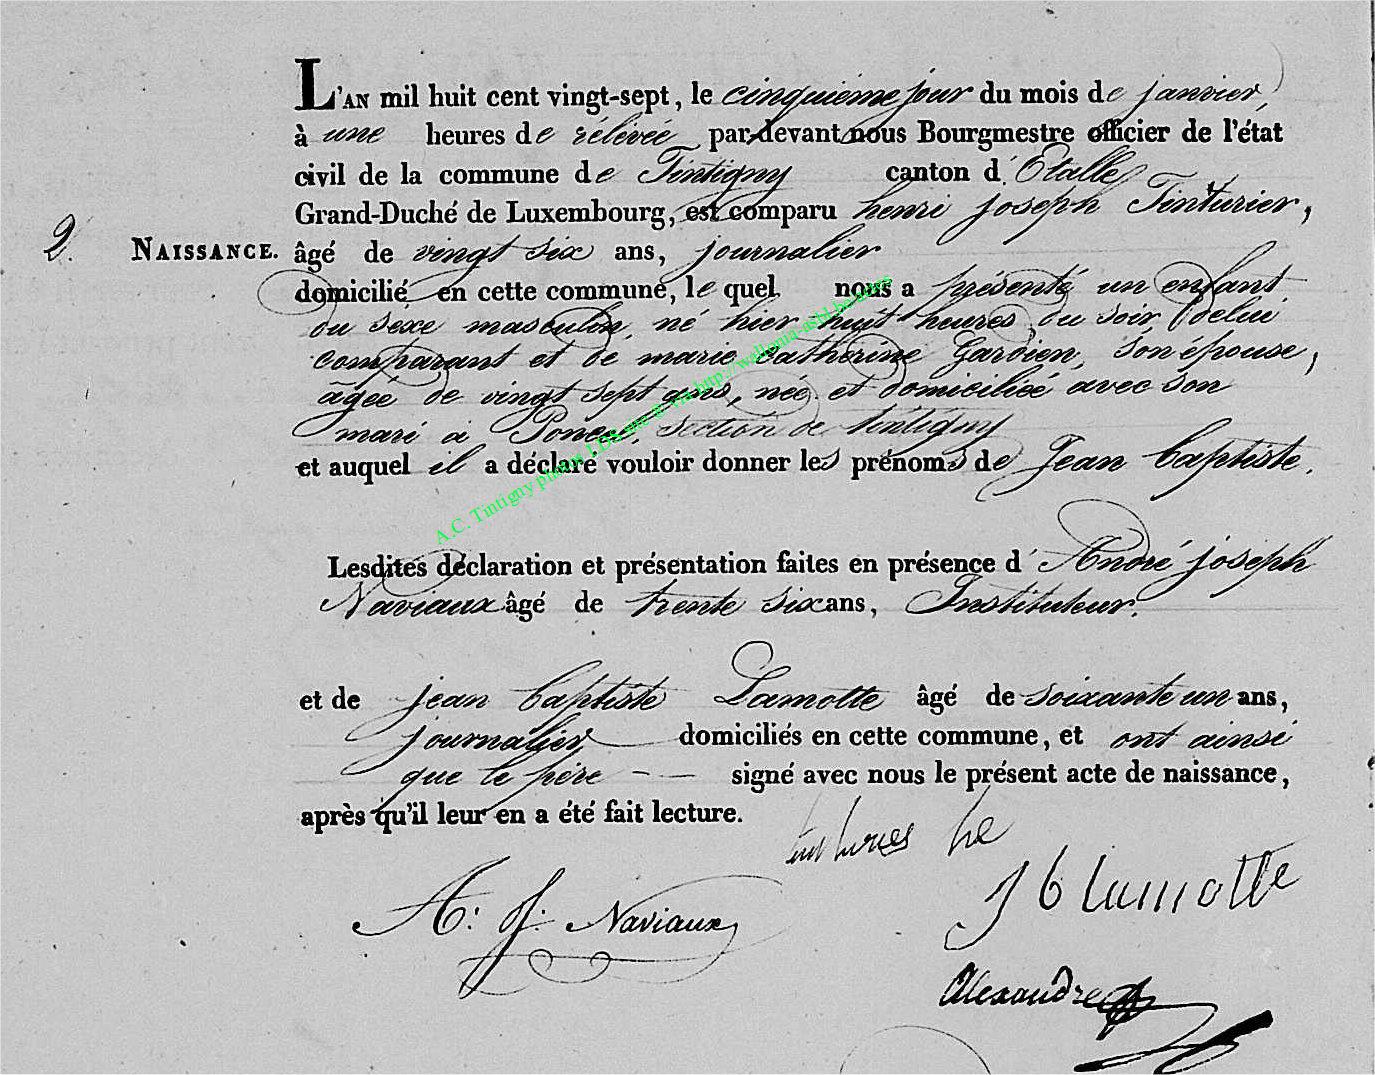 L'AN mil huit cent vingt-sept, le cinquième jour du mois de janvier,
à une heures de rélévée par-devant nous Bourgmestre officier de l'état
civil de la commune de Tintigny canton d'Etalle
Grand-Duché de Luxembourg, est comparu henri joseph Tinturier,
2. NAISSANCE. âgé de vingt six ans, journalier
domicilié en cette commune, le quel nous a présenté un enfant
du sexe masculin, né hier huit heures du soir, de lui
comparant et de marie catherine Gardien, son épouse,
âgée de vingt sept ans, née et domiciliée avec son
mari à section de tintigny
et auquel il a déclaré vouloir donner les prénoms de Jean baptiste.
A.C. Tintigny photos LDS via http://wallonia-asbl.be
Lesdites déclaration et présentation faites en présence d'André joseph
Naviaux âgé de trente six ans, Instituteur.
et de jean baptiste Lamotte âgé de soixante un ans,
journalier domiciliés en cette commune, et ont ainsi
que le père - — signé avec nous le présent acte de naissance,
après qu'il leur en a été fait lecture.
he
J b lamotte
A: J: Naviaux
Alexandre